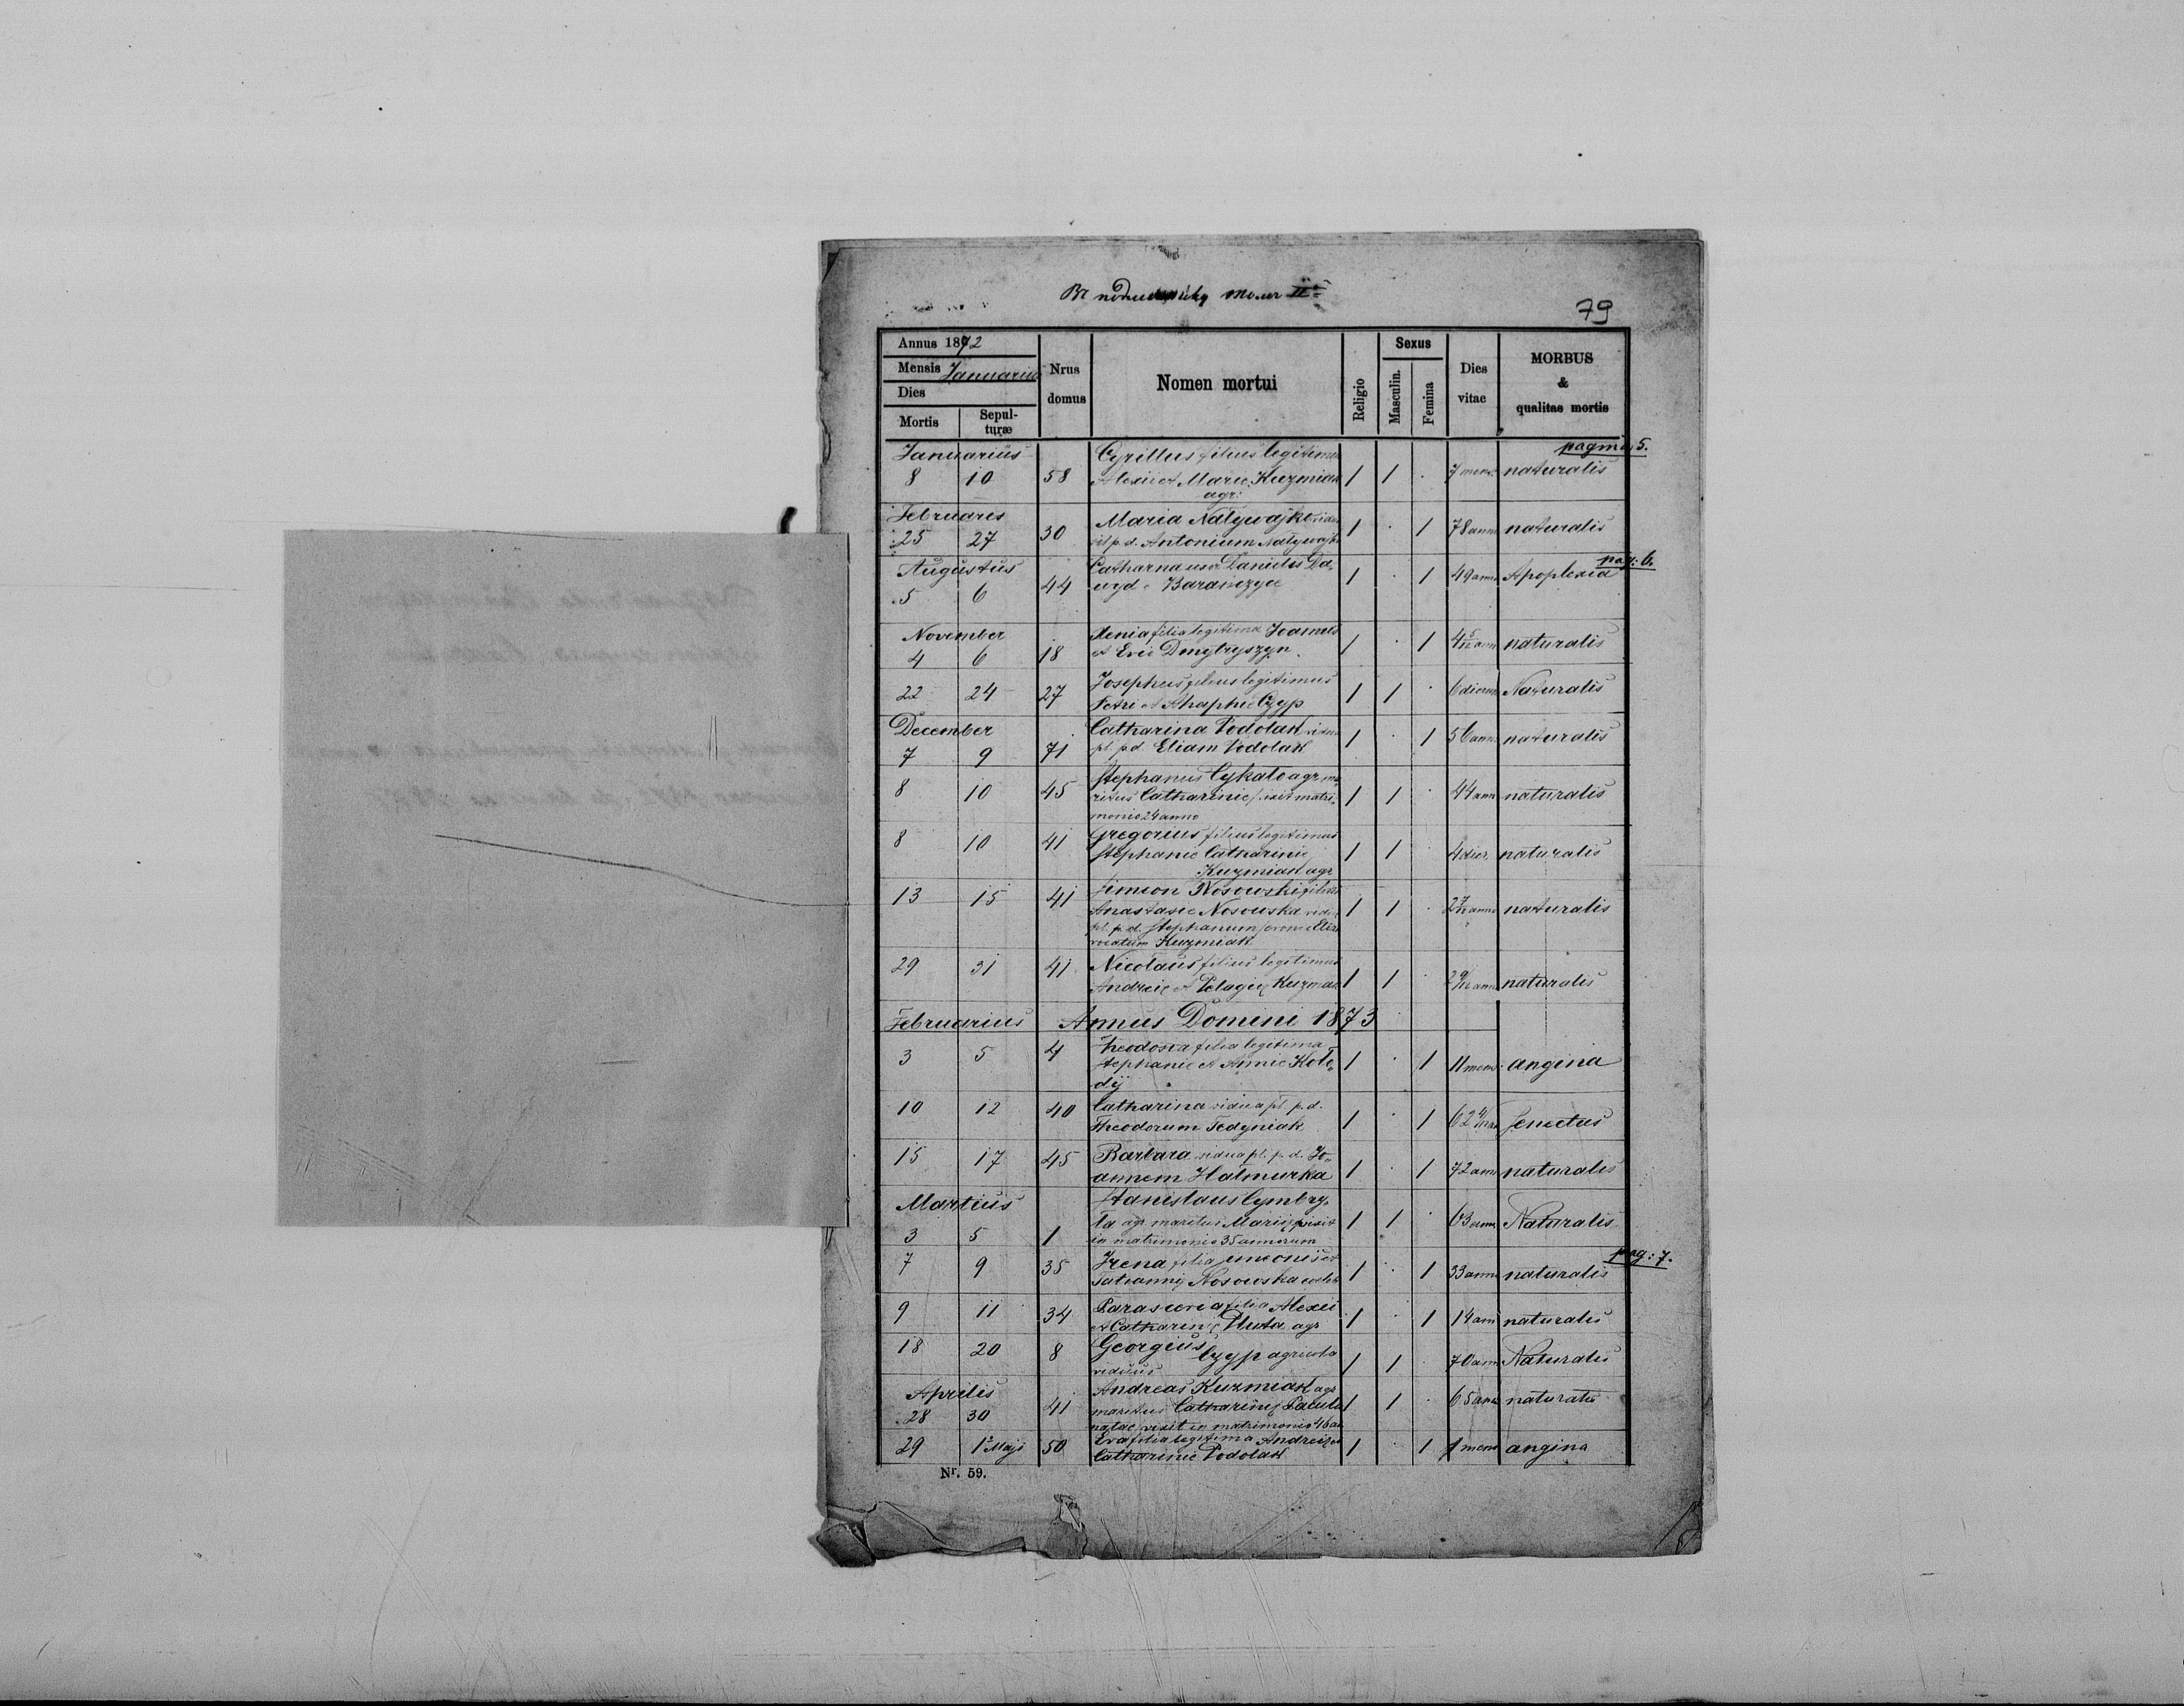 79
Annus 1872
Mensis Januarius
Dies
Mortis Sepulturæ
Nrus domus
Nomen mortui
Religio
Sexus
Masculin. Femina
Dies vitae
MORBUS & qualitas mortis
pagina 5.
Januarius
8 10 58 Cyrillus filius legitimus 7 mens. naturalis
Alexii et Marie Kuzmiak 1 1
agr:
Februaris
25 27 30 Maria Nalywajko 1 1 78 ann naturalis
p. d. Antonium Nalywajko
pag: 6.
Augustus
5 6 44 Catharna uxor Danielis Da- 1 1 49 ann Apoplexia
wyd Barańczyce
November
4 6 18 Xenia filia legitima Joannis 1 1 4 5/12 ann naturalis
et Evie Dmytryszyn.
22 24 27 Josephus filius legitimus 1 1 6 dierum Naturalis
Petri et Czyp
December
7 9 71 Catharina Podolak vidua 1 1 56 ann naturalis
pt. p. d. Eliam Podolak
8 10 45 Stephanus Cykalo agr. ma- 1 1 44 ann naturalis
ritus Catharinie vixit matri-
monio 24 anno
8 10 41 Gregorius filius legitimus 1 1 4 dier. naturalis
Stephanie Catharinie
Kuzmiak agr
13 15 41 Simeon Nosowski filius 1 1 ann naturalis
Anastasie Nosowska vidua
pt. p. d. Stephanum
Kuzmiak
29 31 41 Nicolaus filius legitimus 1 1 ann naturalis
Andreie et Pelagie Kuzmiak
Februarius Annus Domini 1873
3 5 4 Theodosia filia legitima 1 1 11 mens. angina
Stephanie et Annie Kolo-
dij
10 12 40 Catharina vidua pt. p. d. 1 1 62 Senectus
Theodorum Fedyniak
15 17 45 Barbara vidua pt. p. d. Jo- 1 1 72 ann naturalis
annem Halmurka
Martius
3 5 1 Stanislaus Cymbry- 1 1 63 ann Naturalis
ła agr. maritus Marię vixit
in matrimonio 35 annorum
pag: 7.
7 9 35 Irena filia Simeonis et 1 1 33 ann naturalis
Tatianny Nosowska
9 11 34 Parascevia filia Alexii 1 1 14 ann naturalis
et Catharinę Pluta agr
18 20 8 Georgius Czyp agricola 1 1 70 ann Naturalis
viduus
Aprilis
28 30 41 Andreas Kuzmiak agr 1 1 65 ann naturalis
maritus Catharinę Pacula
natae vixit in matrimonio 46 an
29 1 Maji 50 Eva filia legitima Andreię et 1 1 1 mens angina
Catharinie Podolak
Nr. 59.